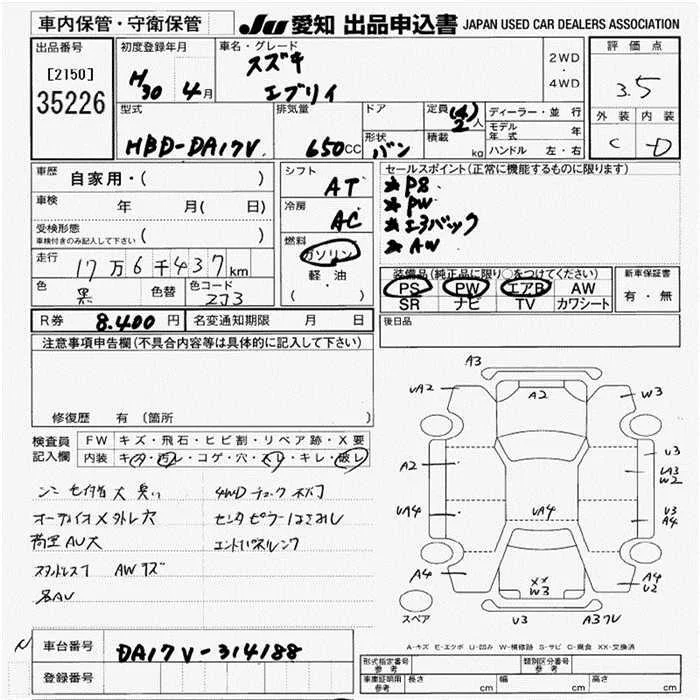 車内保管・守衛保管
JU 愛知 出品申込書 JAPAN USED CAR DEALERS ASSOCIATION
出品番号
[2150]
35226
初度登録年月
H30 4月
車名・グレード
スズキ
エブリイ
2WD
・
4WD
評価点
3.5
外装 内装
C D
型式
HBD-DA17V
排気量
650cc
ドア
形状
バン
定員 (4) 2人
積載 kg
ディーラー・並行
モデル年式 年
ハンドル 左・右
車歴 自家用・( )
車検 年 月( 日)
受検形態
車検付きのみ記入して下さい ( )
走行 17万6千437km
色 黒 色替 色コード ZJ3
シフト AT
冷房 AC
燃料
ガソリン
軽・油
( )
セールスポイント(正常に機能するものに限ります)
★PS
★PW
★エアバック
★AW
装備品(純正品に限り○をつけてください)
PS PW エアB AW
SR ナビ TV カワシート
新車保証書
有・無
R券 8,400円 名変通知期限 月 日
後日品
注意事項申告欄(不具合内容等は具体的に記入して下さい)
修復歴 有(箇所 )
検査員記入欄
FW キズ・飛石・ヒビ割・リペア跡・X要
内装 キズ・汚レ・コゲ・穴・スレ・キレ・破レ
オーディオX外レ穴
荷室AU大
AWキズ
各AU
4WD
A3
UA2
A2
W3
A2
U3
UA3
W2
UA4
UA4
U3
A4
A4
XX
W3
A4
U2
スペア
U3
A-キズ E-エクボ U-凹み W-補修跡 S-サビ C-腐食 XX-交換済
車台番号 DA17V-314188
登録番号
形式指定番号 参考
類別区分番号 参考
車庫証明用 参考 長さ cm 幅 cm 高さ cm